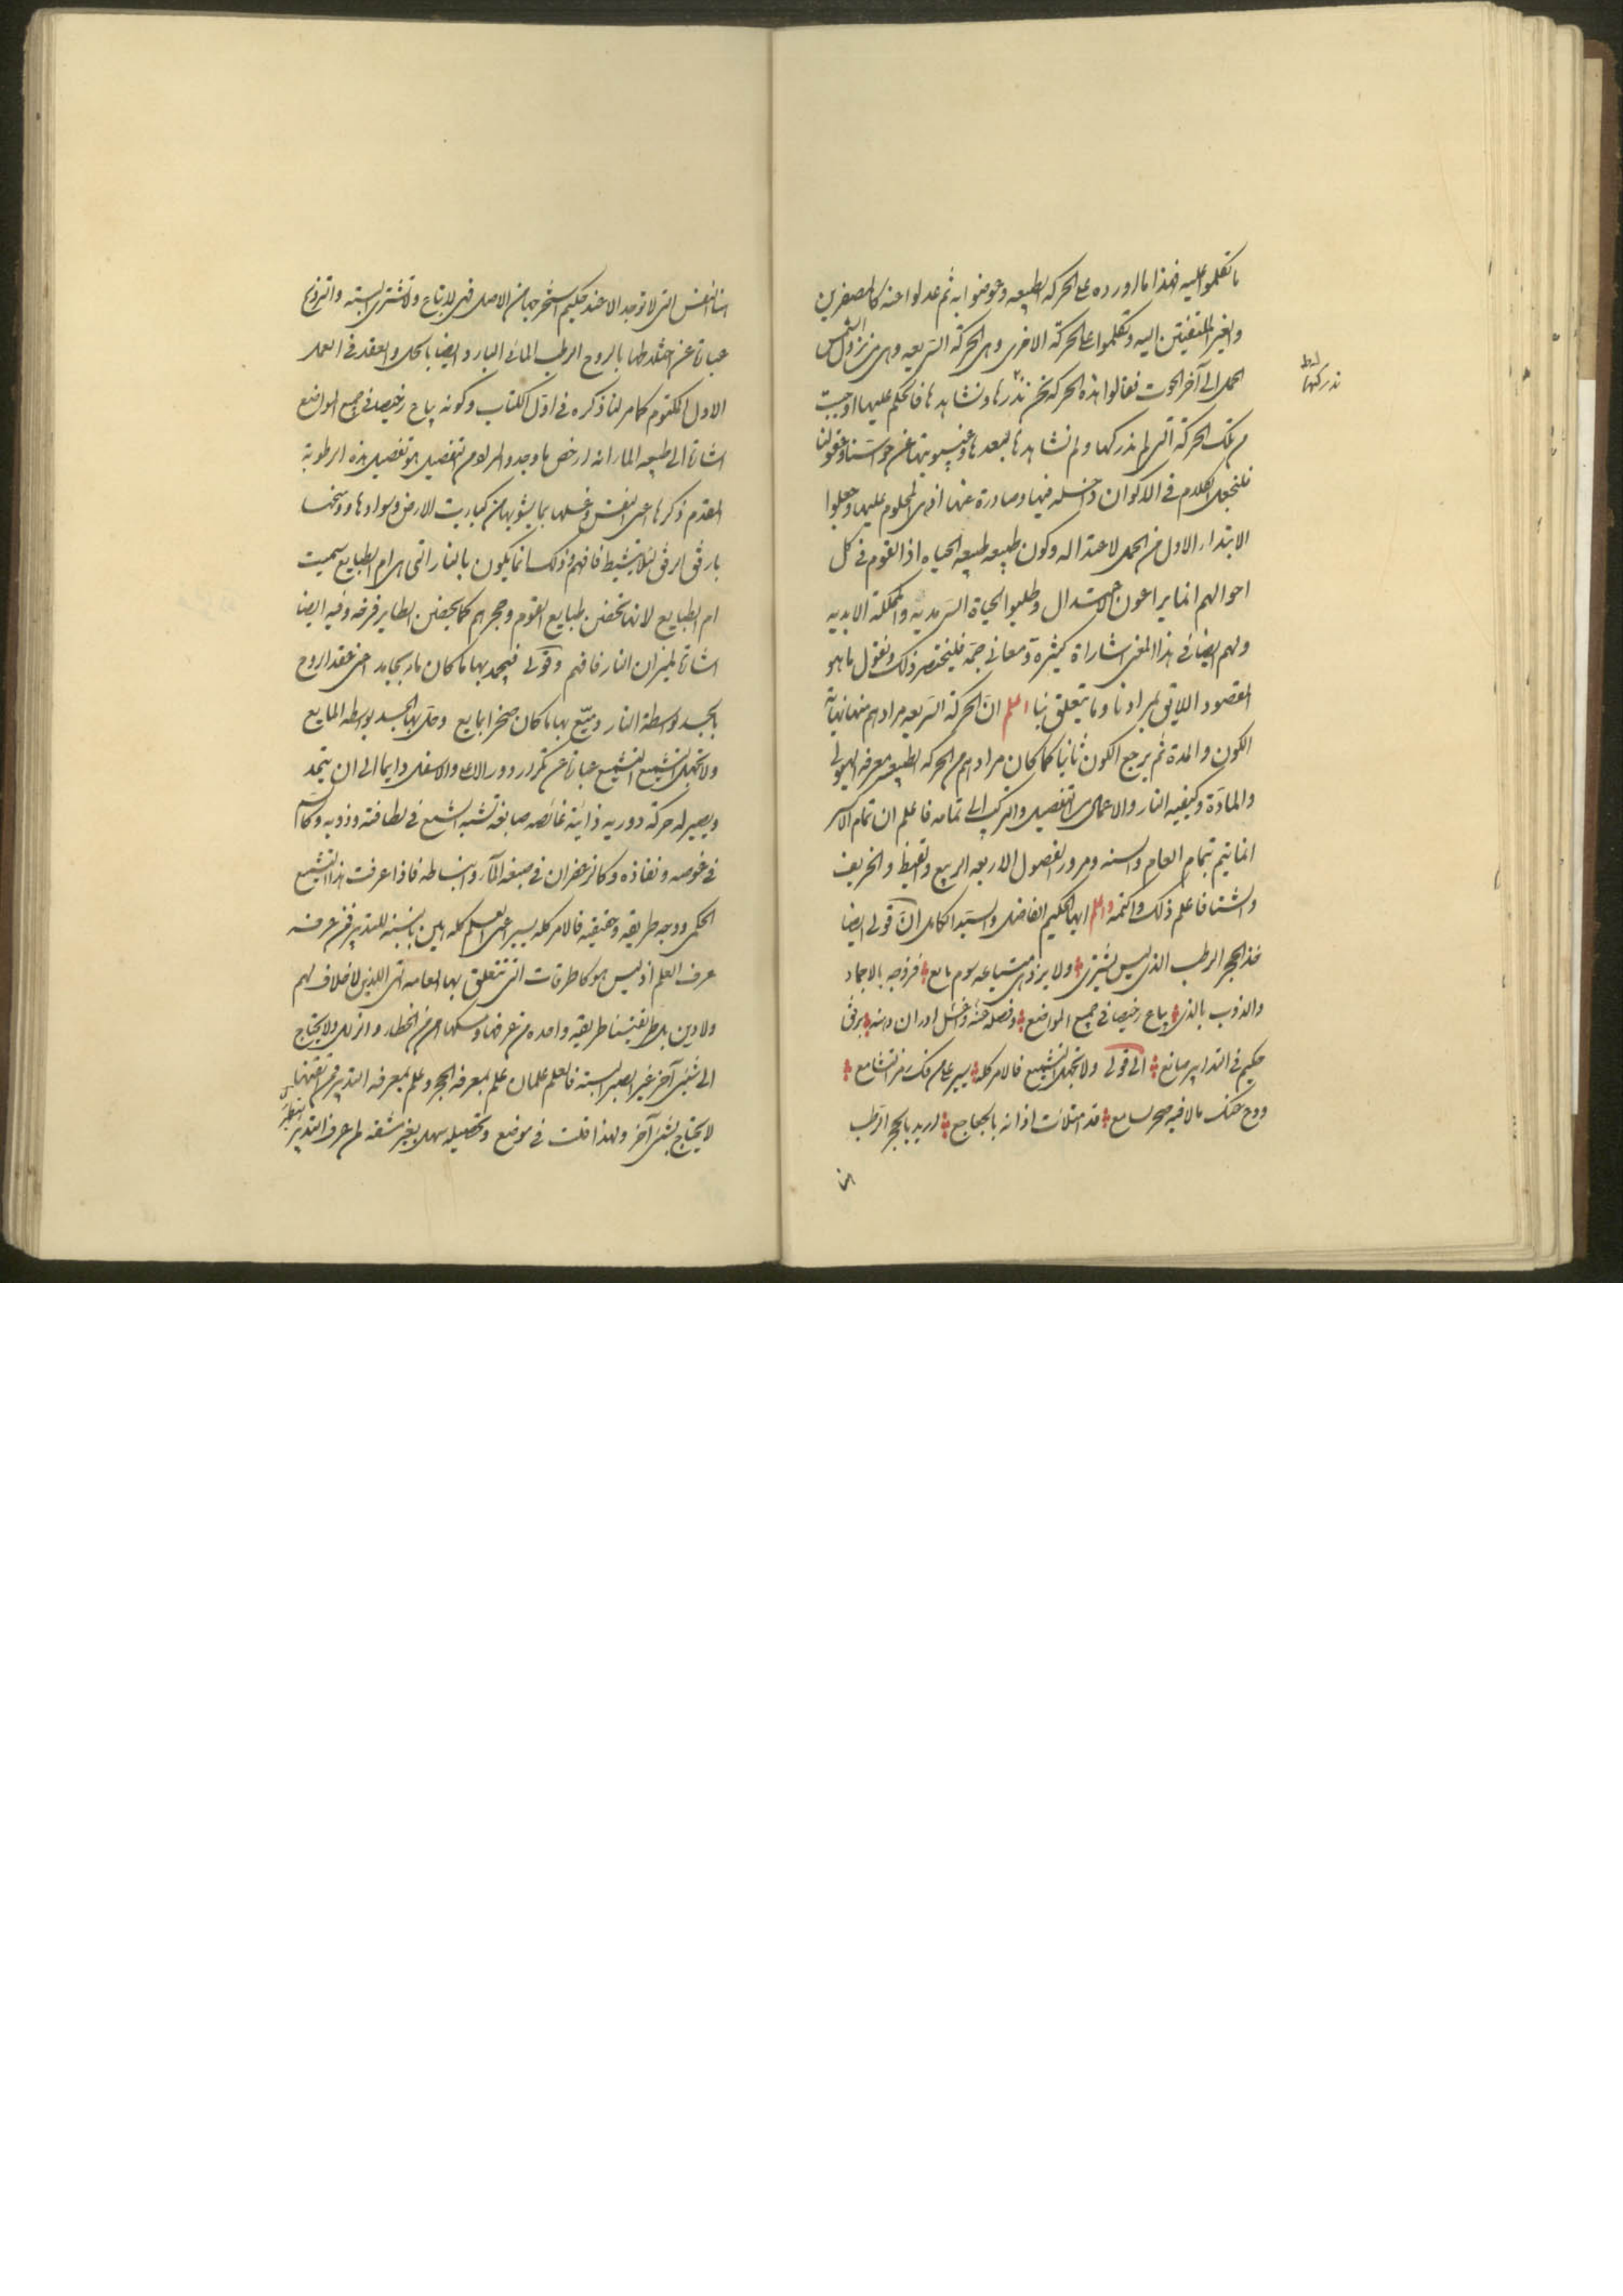 ما تكلموا عليه فهذا ما اوردوه على الحركه الطبيعه وعرضوا به ثم عدلوا عنه كالمصغرين
والغير الملتفتين اليه وتكلموا على الحركة الاخرى وهى الحركة السريعه وهى من نزول الشمس
الحمل الى آخر الحوت فقالوا هذه الحركه نحن ندركها ونشاهدها فالحكم عليها اوجب
من تلك الحركة التى لم ندركها ولم نشاهدها لبعدها وغيبوبتها عن حواسنا وعقولنا
فلنجعل الكلام فى الاكوان داخله فيها وصادرة عنها اذ هى المحكوم عليها وجعلوا
الابتداء الاول من الحمل لاعتداله وكون طبيعه طبيعه الحياه اذ القوم فى كل
احوالهم انما يراعون جهة الاعتدال وطلبوا الحياة السرمديه والمملكة الابديه
ولهم ايضا فى هذا المعنى اشاراة كثيرة ومعانى جمة فلنختصر ذلك ونقول ما هو
المقصود اللايق بمرادنا وما يتعلق بنا اعلم ان الحركة السريعه مرادهم منها نهاية
الكون والمدة ثم يرجع الكون ثانيا كما كان مرادهم من الحركه الطبيعه معرفه الهيولى
والمادة وكيفيه النار والاعمال من التفصيل والتركيب الى تمامه فاعلم ان تمام الاكسير
انما يتم بتمام العام والسنه ومرور الفصول الاربعه الربيع والقيظ والخريف
والشتا فاعلم ذلك واكتمه واعلم ايها الحكيم الفاضل والسيد الكامل ان قولى ايضا
فخذ الحجر الرطب الذى ليس يشترى ولا يزدهى مبتاعه سوم بايع فزوجه بالاجماد
والذوب بالذى يباع رخيصا فى جميع المواضع وفصله حتى واغسل ادران دنسه برفق
حكيم فى التدابير صانع الى قولى ولا تجهل التشميع فالامر كله يسير على من فك رمز التشامع
ودع عنك ما لا فيه صح لسامع قد امتلأت اذانه بالجعاجع اريد بالحجر الرطب
ندركها
هنا النفس التى لا توجد الا عند حكيم استخرجها من الاصل فهى لا تباع ولا تشترى البته والتزويج
عبارة عن اختلاطها بالروح الرطب المائى البارد وايضا بالحل والعقد فى العمل
الاول المكتوم كما مر لنا ذكره فى اول الكتاب وكونه يباع رخيصا فى جميع المواضع
اشارة الى طبيعه الماء انه ارخص ما وجد والمراد من التفصيل هو تفصيل هذه الرطوبة
المقدم ذكرها اعنى النفس وغسلها بما يشوبها من كباريت الارض وسوادها ووسخها
بارفق الرفق لئلا تشيط فافهم وذلك انما يكون بالنار التى هى ام الطبايع سميت
ام الطبايع لانها تحضن طبايع القوم وحجرهم كما يحضن الطاير فرخه وفيه ايضا
اشارة لميزان النار فافهم وقولى فيجمد بها ما كان ماء بجامد اعنى عقد الروح
بالجسد بوسطة النار وميّع بها ما كان صخرا بمايع وحل بها الجسد بوسطه المايع
ولا تجهل التشميع التشميع عبارة عن تكرار دور الاعلى والاسفل دايما الى ان يتحد
ويصير له حركة دوريه ذائبة غائصه صابغة تشبه الشمع فى لطافته وذوبه وكالسم
فى غوصه ونفاذه وكالزعفران فى صبغه الماء وانبساطه فاذا عرفت هذا التشميع
الحكمى ووجه طريقه وحقيقه فالامر كله يسير اعنى العلم كله هين بالنسبة للتدبير فمن عرفه
عرف العلم اذ ليس هو كالطرقات التى تتعلق بها العامه التى اللذين لا خلاف لهم
ولا دين بل طريقتنا طريقة واحده من عرفها وسلكها امن من الخطاء والزلل ولا يحتاج
الى شئ آخر غير الصبر البتة فالعلم علمان علم بمعرفه الحجر وعلم بمعرفه التدبير فمن اتقنها
لا يحتاج لشئ آخر ولهذا قلت فى موضع وتحصيله سهل بغير مشقه لمن عرف التدبير